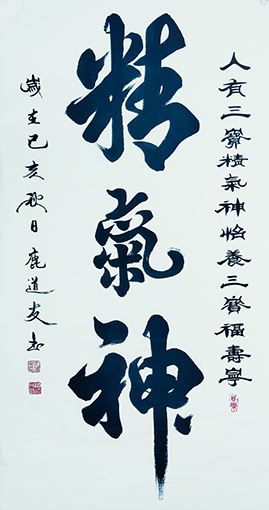 人有三寶精氣神怡養三寶福壽寧
精氣神
歲在己亥秋日鹿道友書